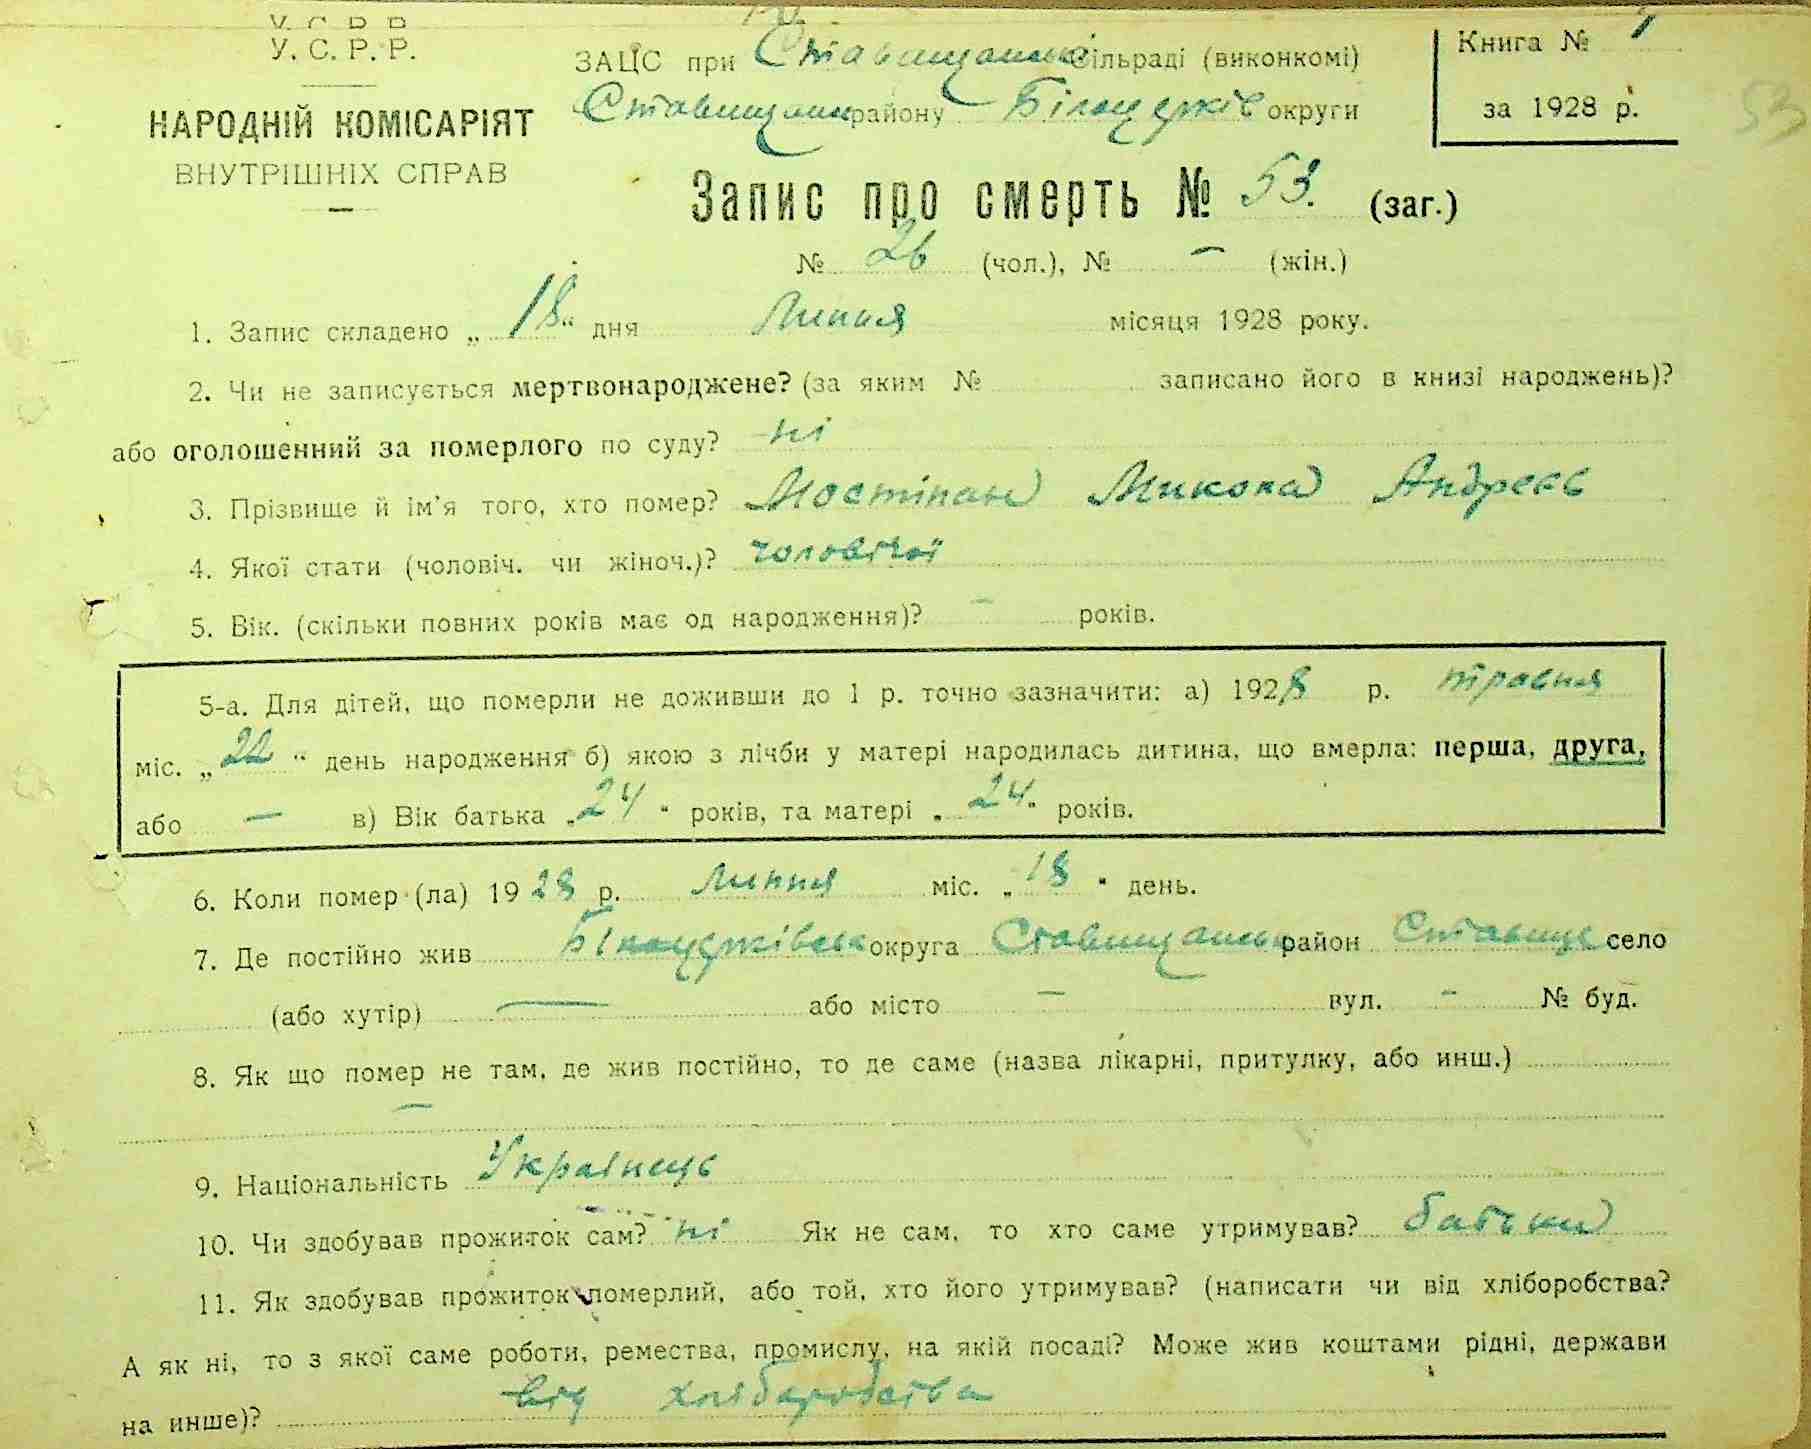 У. С. Р. Р.
У. С. Р. Р.
НАРОДНІЙ КОМІСАРІЯТ
ВНУТРІШНІХ СПРАВ
ЗАЦС при Ставищанськ. сільраді (виконкомі)
Ставищанськ району Білоцерків округи
Книга №
за 1928 р.
53
Запис про смерть № 53. (заг.)
№ 26 (чол.), № – (жін.)
1. Запис складено „18“ дня Липня місяця 1928 року.
2. Чи не записується мертвонароджене? (за яким № записано його в книзі народжень)?
або оголошенний за померлого по суду? ні
3. Прізвище й ім'я того, хто помер? Мостіпан Микола Андреев
4. Якої стати (чоловіч. чи жіноч.)? чоловічої
5. Вік. (скільки повних років має од народження)? – років.
5-а. Для дітей, що померли не доживши до 1 р. точно зазначити: а) 1928 р. травня
міс. „22“ день народження б) якою з лічби у матері народилась дитина, що вмерла: перша, друга,
або – в) Вік батька „24“ років, та матері „24“ років.
6. Коли помер (ла) 1928 р. липня міс. „18“ день.
7. Де постійно жив Білоцерківськ округа Ставищанськ район Ставище село
(або хутір) – або місто – вул. – № буд.
8. Як що помер не там, де жив постійно, то де саме (назва лікарні, притулку, або инш.)
–
9. Національність Українець
10. Чи здобував прожиток сам? ні Як не сам, то хто саме утримував? батьки
11. Як здобував прожиток померлий, або той, хто його утримував? (написати чи від хліборобства?
А як ні, то з якої саме роботи, ремества, промислу, на якій посаді? Може жив коштами рідні, держави
на инше)? від хліборобства